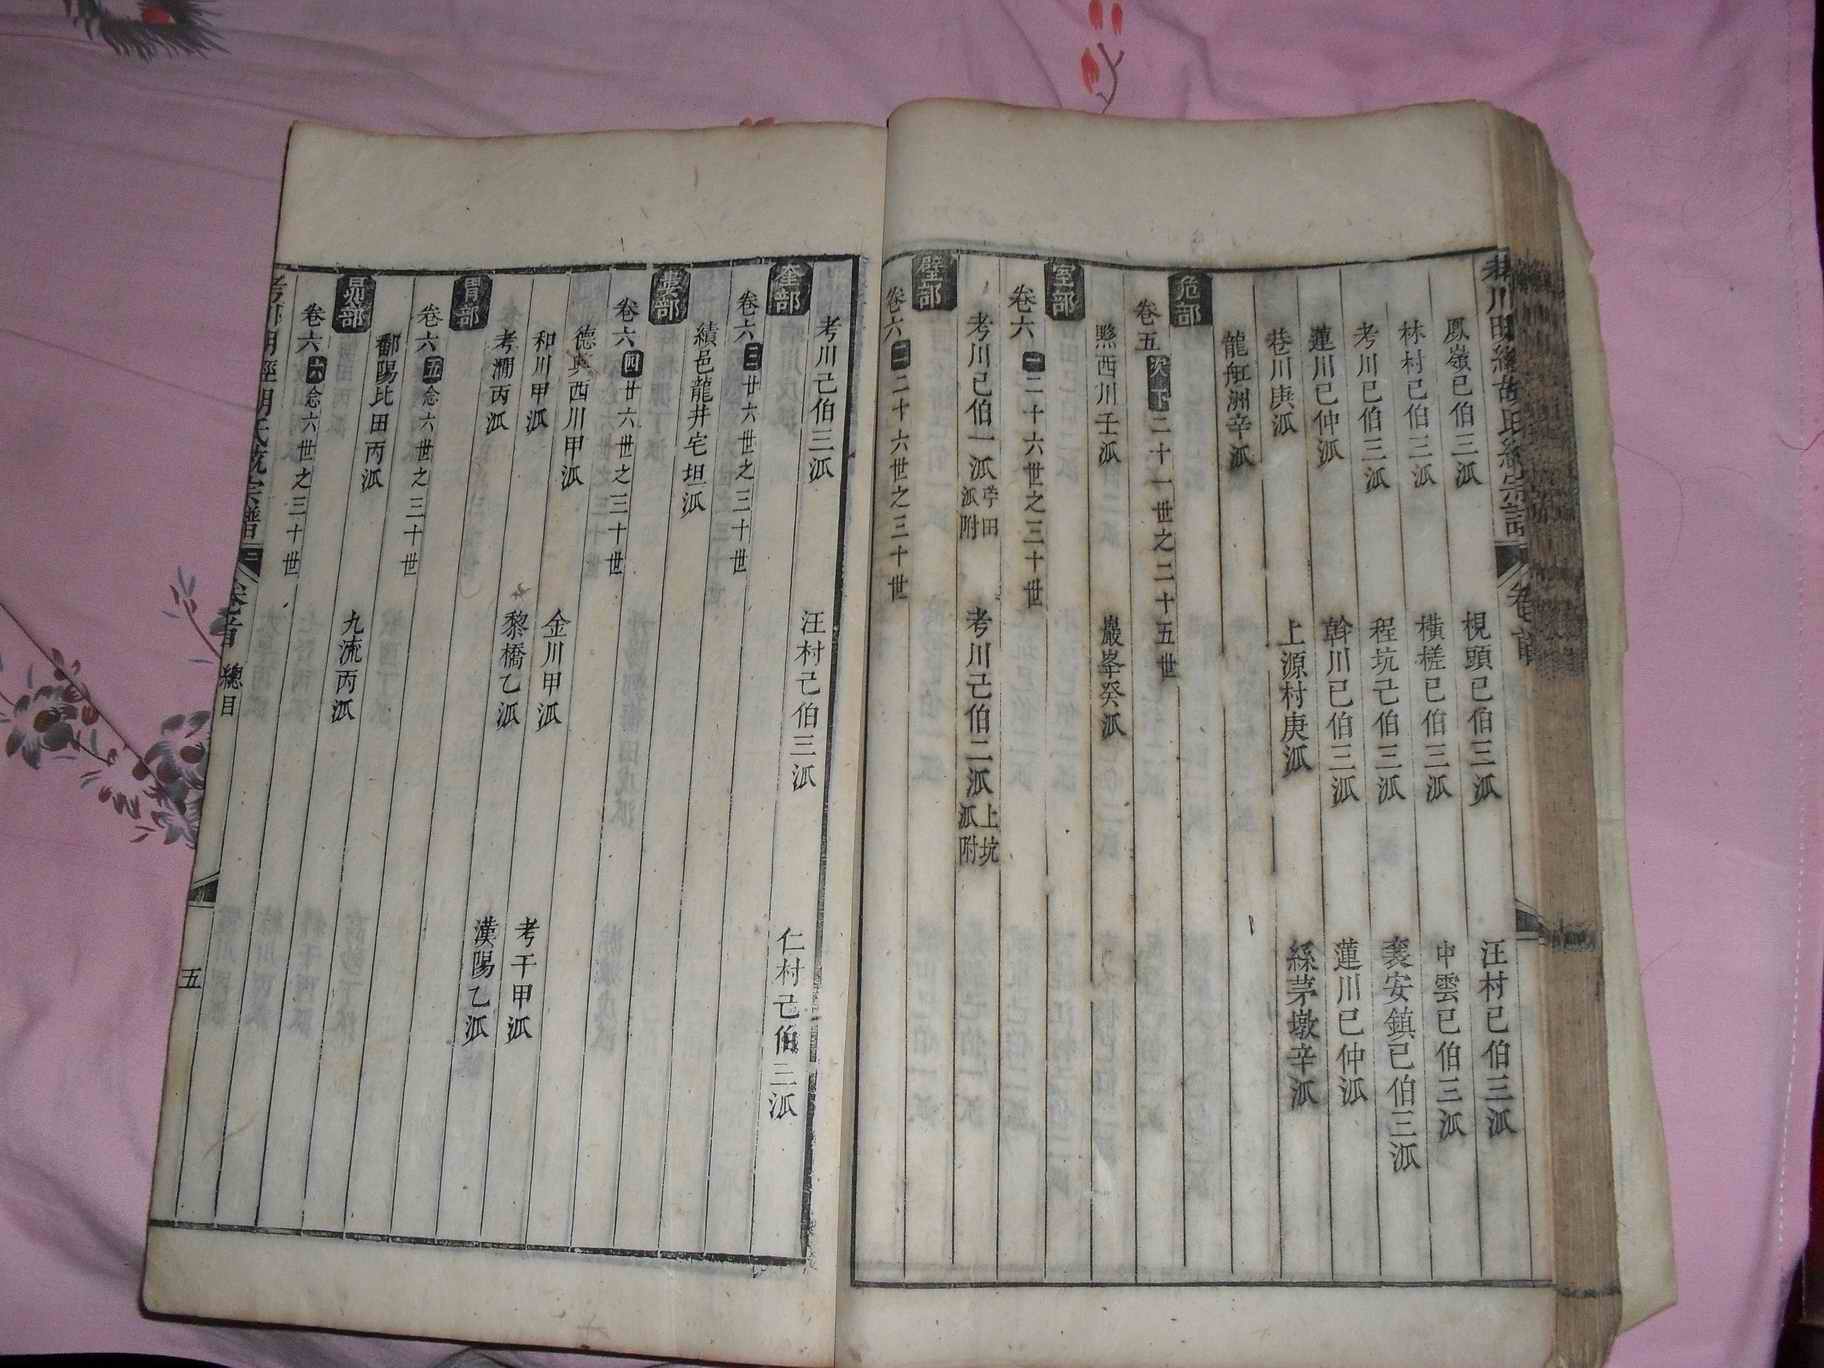 鳳嶺已伯三派 梘頭已伯三派 汪村已伯三派
林村已伯三派 橫槎已伯三派 中雲已伯三派
考川已伯三派 程坑己伯三派 襲安鎮已伯三派
蓮川已仲派 斡川已伯三派 蓮川已仲派
巷川庚派 上源村庚派 絲茅墩辛派
龍舡洲辛派
危部
卷五次下二十一世之二十五世
黟西川壬派 巖峯癸派
室部
卷六一二十六世之三十世
考川已伯一派芧田派附 考川己伯二派上坑派附
壁部
卷六二二十六世之三十世
考川己伯三派 汪村己伯三派 仁村己伯三派
奎部
卷六三廿六世之三十世
績邑龍井宅坦派
婁部
卷六四廿六世之三十世
德興西川甲派
和川甲派 金川甲派 考干甲派
考澗丙派 黎橋乙派 漢陽乙派
胃部
卷六五念六世之三十世
鄱陽比田丙派 九流丙派
昴部
卷六六念六世之三十世
考川明經胡氏統宗譜 卷首 總目 五